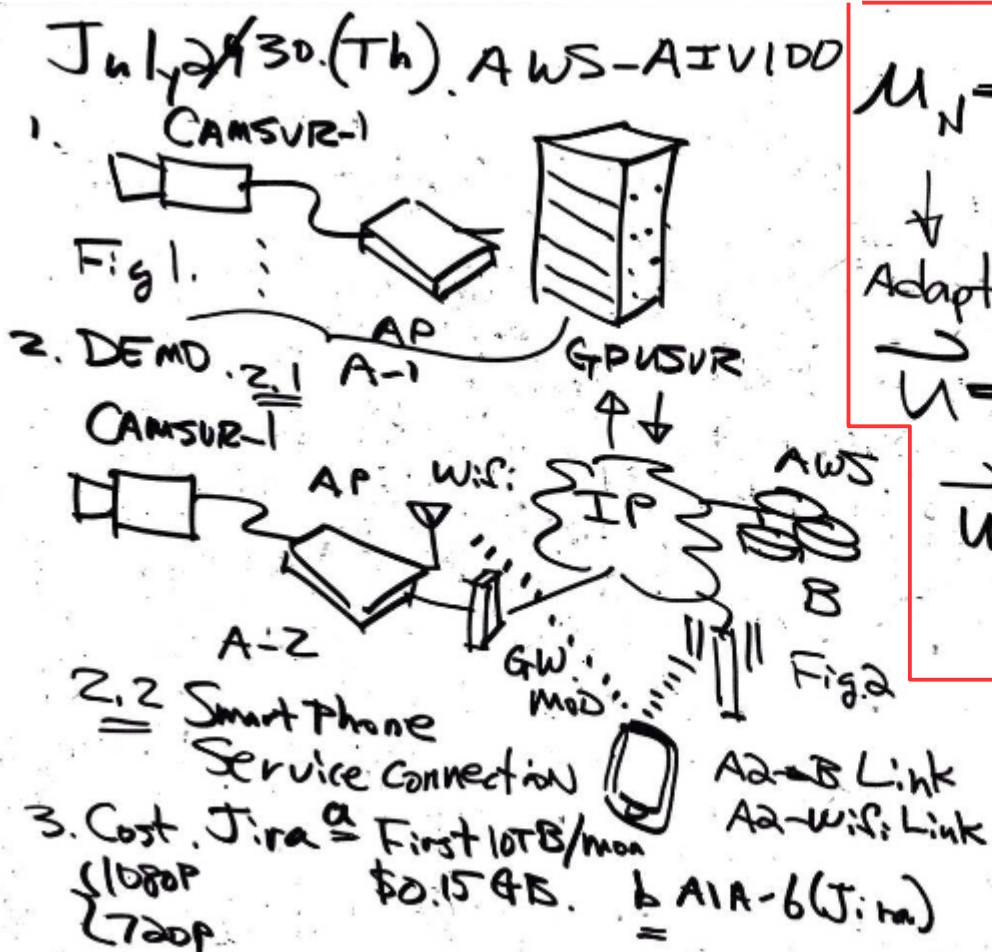 July 30.(Th). AWS-AIV100
1. CAMSUR-1
Fig 1.
AP
A-1
GPUSUR
2. DEMO. 2.1
CAMSUR-1
AP
Wifi
IP
AWS
B
A-2
GW
MOD
Fig.2
2.2 Smart Phone
Service Connection
A2-B Link
A2-Wifi Link
3. Cost. Jira a First 10TB/mon
{1080P
$0.15 GB.
b A1A-6(Jira)
{720P
μN=
↓
Adapt
U=
U